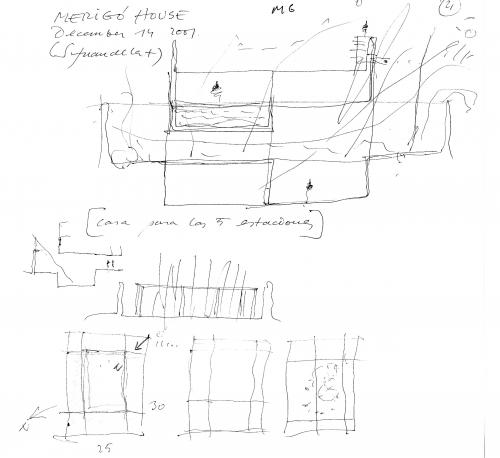 MERIGÓ HOUSE
December 14 2001
M6
(4)
[casa para las 5 estaciones]
N
30
N
25